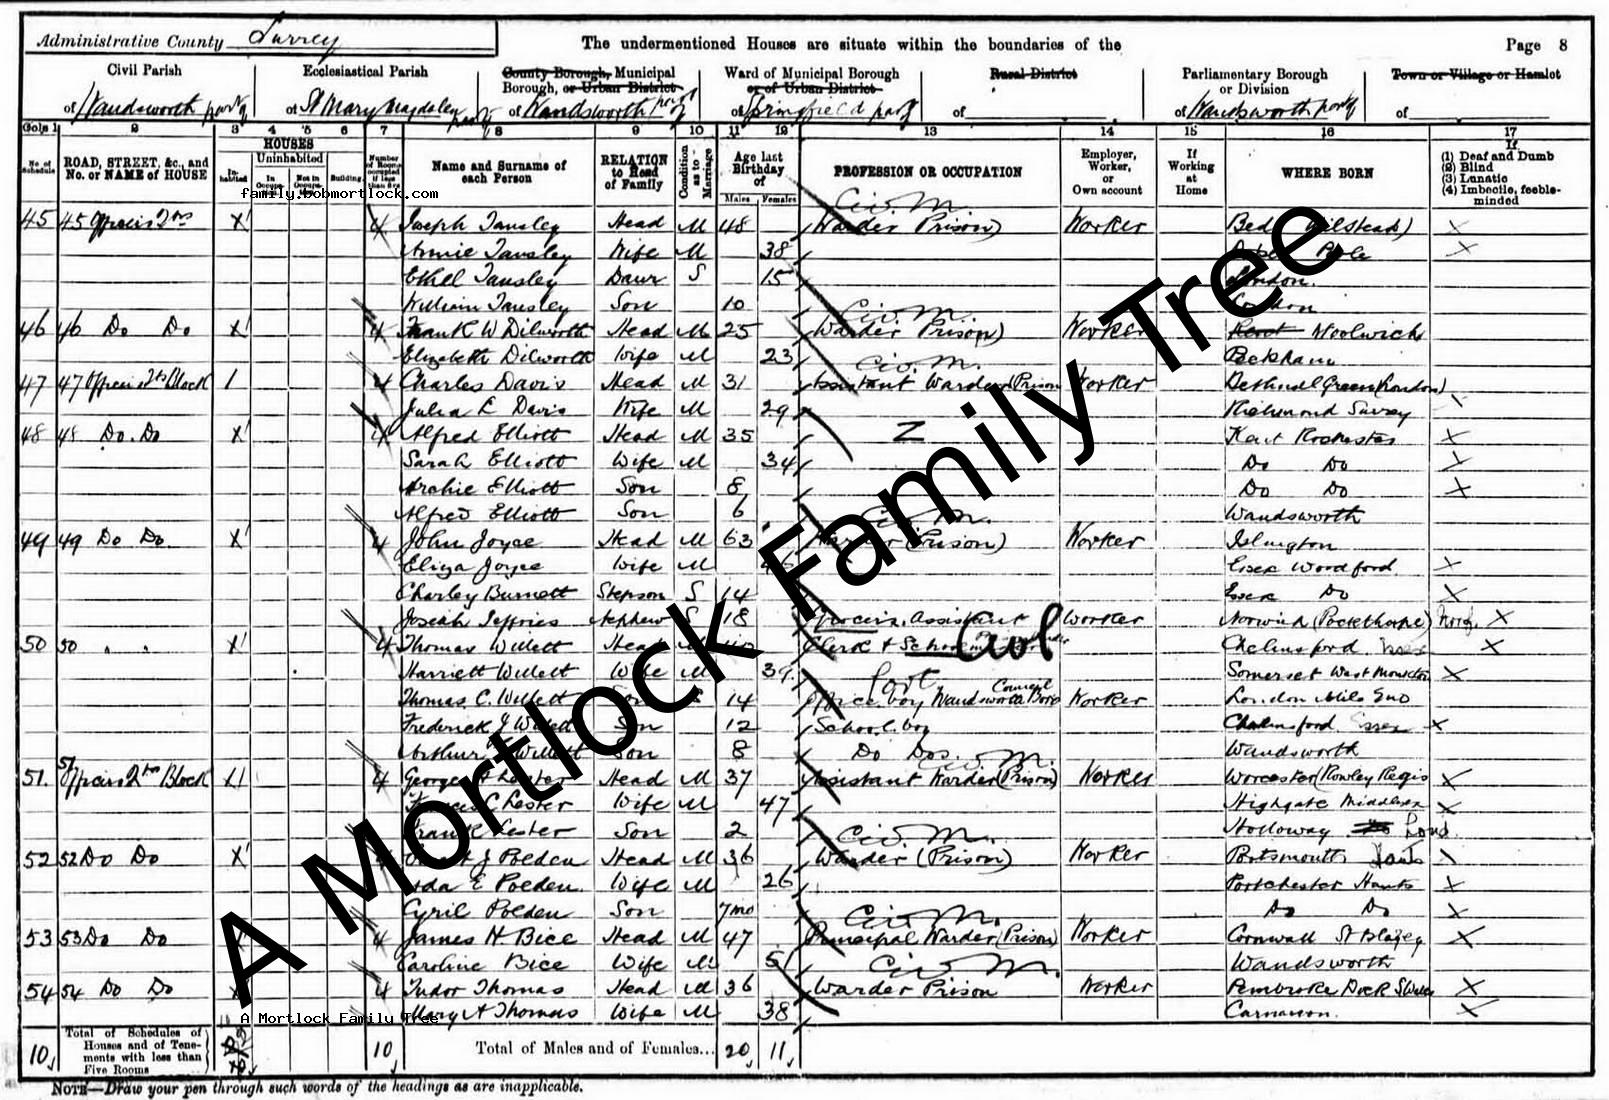 Administrative County Surrey
The undermentioned Houses are situate within the boundaries of the
Page 8
Civil Parish
of Wandsworth part of
Ecclesiastical Parish
of St Mary Magdalen part of
County Borough, Municipal
Borough, or Urban District
of Wandsworth part of
Ward of Municipal Borough
or of Urban District
of Springfield part
Rural District
of
Parliamentary Borough
or Division
of Wandsworth part of
Town or Village or Hamlet
of
Cols 1 2 3 4 5 6 7 8 9 10 11 12 13 14 15 16 17
No. of Schedule
ROAD, STREET, &c., and
No. or NAME of HOUSE
HOUSES
Inhabited
Uninhabited
In Occup.
Not in Occup.
Building
Number of Rooms occupied if less than five
Name and Surname of
each Person
RELATION
to Head
of Family
Condition as to Marriage
Age last
Birthday
of
Males Females
PROFESSION OR OCCUPATION
Employer,
Worker,
or
Own account
If
Working
at
Home
WHERE BORN
If
(1) Deaf and Dumb
(2) Blind
(3) Lunatic
(4) Imbecile, feeble-
minded
family.bobmortlock.com
Civ. M.
45 45 Officers Qrs X 4 Joseph Tansley Head M 48 Warder Prison) Worker Bed Wilstead)
Annie Tansley Wife M 38 Poole
Ethel Tansley Daur S 15 London
William Tansley Son 10 London
Civ. M.
46 46 Do Do X 4 Frank W Dilworth Head M 25 Warder Prison) Worker Kent Woolwich
Elizabeth Dilworth Wife M 23 Peckham
Civ. M.
47 47 Officers Qrs Block 1 4 Charles Davis Head M 31 Assistant Warder (Prison Worker Bethnal Green (London)
Julia L Davis Wife M 29 Richmond Surrey
48 48 Do. Do X 4 Alfred Elliott Head M 35 Z Kent Rochester
Sarah Elliott Wife M 34 Do Do
Archie Elliott Son 8 Do Do
Alfred Elliott Son 6 Wandsworth
Civ. M.
49 49 Do Do. X 4 John Joyce Head M 63 Warder (Prison) Worker Islington
Eliza Joyce Wife M Essex Woodford
Charley Burnett Stepson S 14 Essex Do
Josiah Jeffries Nephew S 18 Grocers Assistant Worker Norwich (Pockthorpe) Norf.
50 50 " " X 4 Thomas Willett Head M Clerk & Schoolmaster Chelmsford Essex
Harriett Willett Wife M 39 Somerset West Monkton
Thomas C. Willett Son S 14 Office boy Wandsworth Boro Council Worker London Mile End
Frederick J Willett Son 12 School boy Chelmsford Essex
Arthur Willett Son 8 Do Do Wandsworth
Civ. M.
51. 51 Officers Qtrs Block X 4 George A Lester Head M 37 Assistant Warder (Prison) Worker Worcester (Rowley Regis
Frances C Lester Wife M 47 Highgate Middlesex
Frank Lester Son 2 Holloway Lond.
Civ. M.
52 52 Do Do X J Polden Head M 36 Warder (Prison) Worker Portsmouth Hants
Ada E Polden Wife M 26 Portchester Hants
Cyril Polden Son 7mo Do Do
Civ. M.
53 53 Do Do 4 James H Bice Head M 47 Principal Warder (Prison) Worker Cornwall St Blazey
Caroline Bice Wife M 51 Wandsworth
Civ. M.
54 54 Do Do 4 Tudor Thomas Head M 36 Warder Prison Worker Pembroke Dock S Wales
Mary A Thomas Wife M 38 Carnarvon
A Mortlock Family Tree
10 Total of Schedules of
Houses and of Tene-
ments with less than
Five Rooms
10
Total of Males and of Females...
20 11
NOTE—Draw your pen through such words of the headings as are inapplicable.
A Mortlock Family Tree